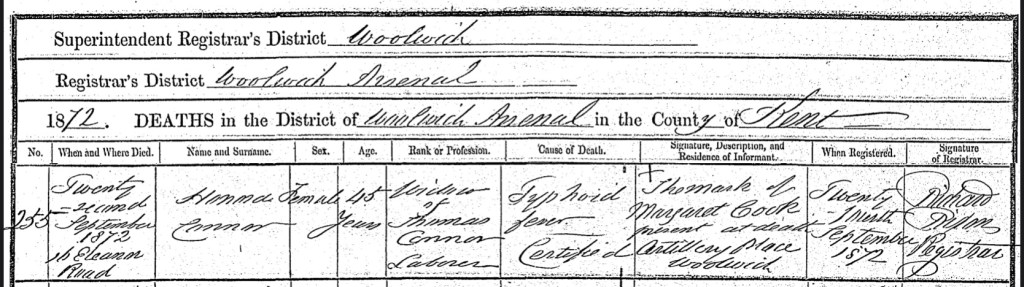 Superintendent Registrar's District Woolwich
Registrar's District Woolwich Arsenal
1872. DEATHS in the District of Woolwich Arsenal in the County of Kent
No. When and Where Died. Name and Surname. Sex. Age. Rank or Profession. Cause of Death. Signature, Description, and Residence of Informant. When Registered. Signature of Registrar.
255
Twenty
-second
September
1872
16 Eleanor
Road
Honnnah
Connor
Female
45
Years
Widow
of
Thomas
Connor
Laborer
Typhoid
fever
Certified
X The mark of
Margaret Cock
present at death
Artillery Place
Woolwich
Twenty
September
1872
Richard
Registrar